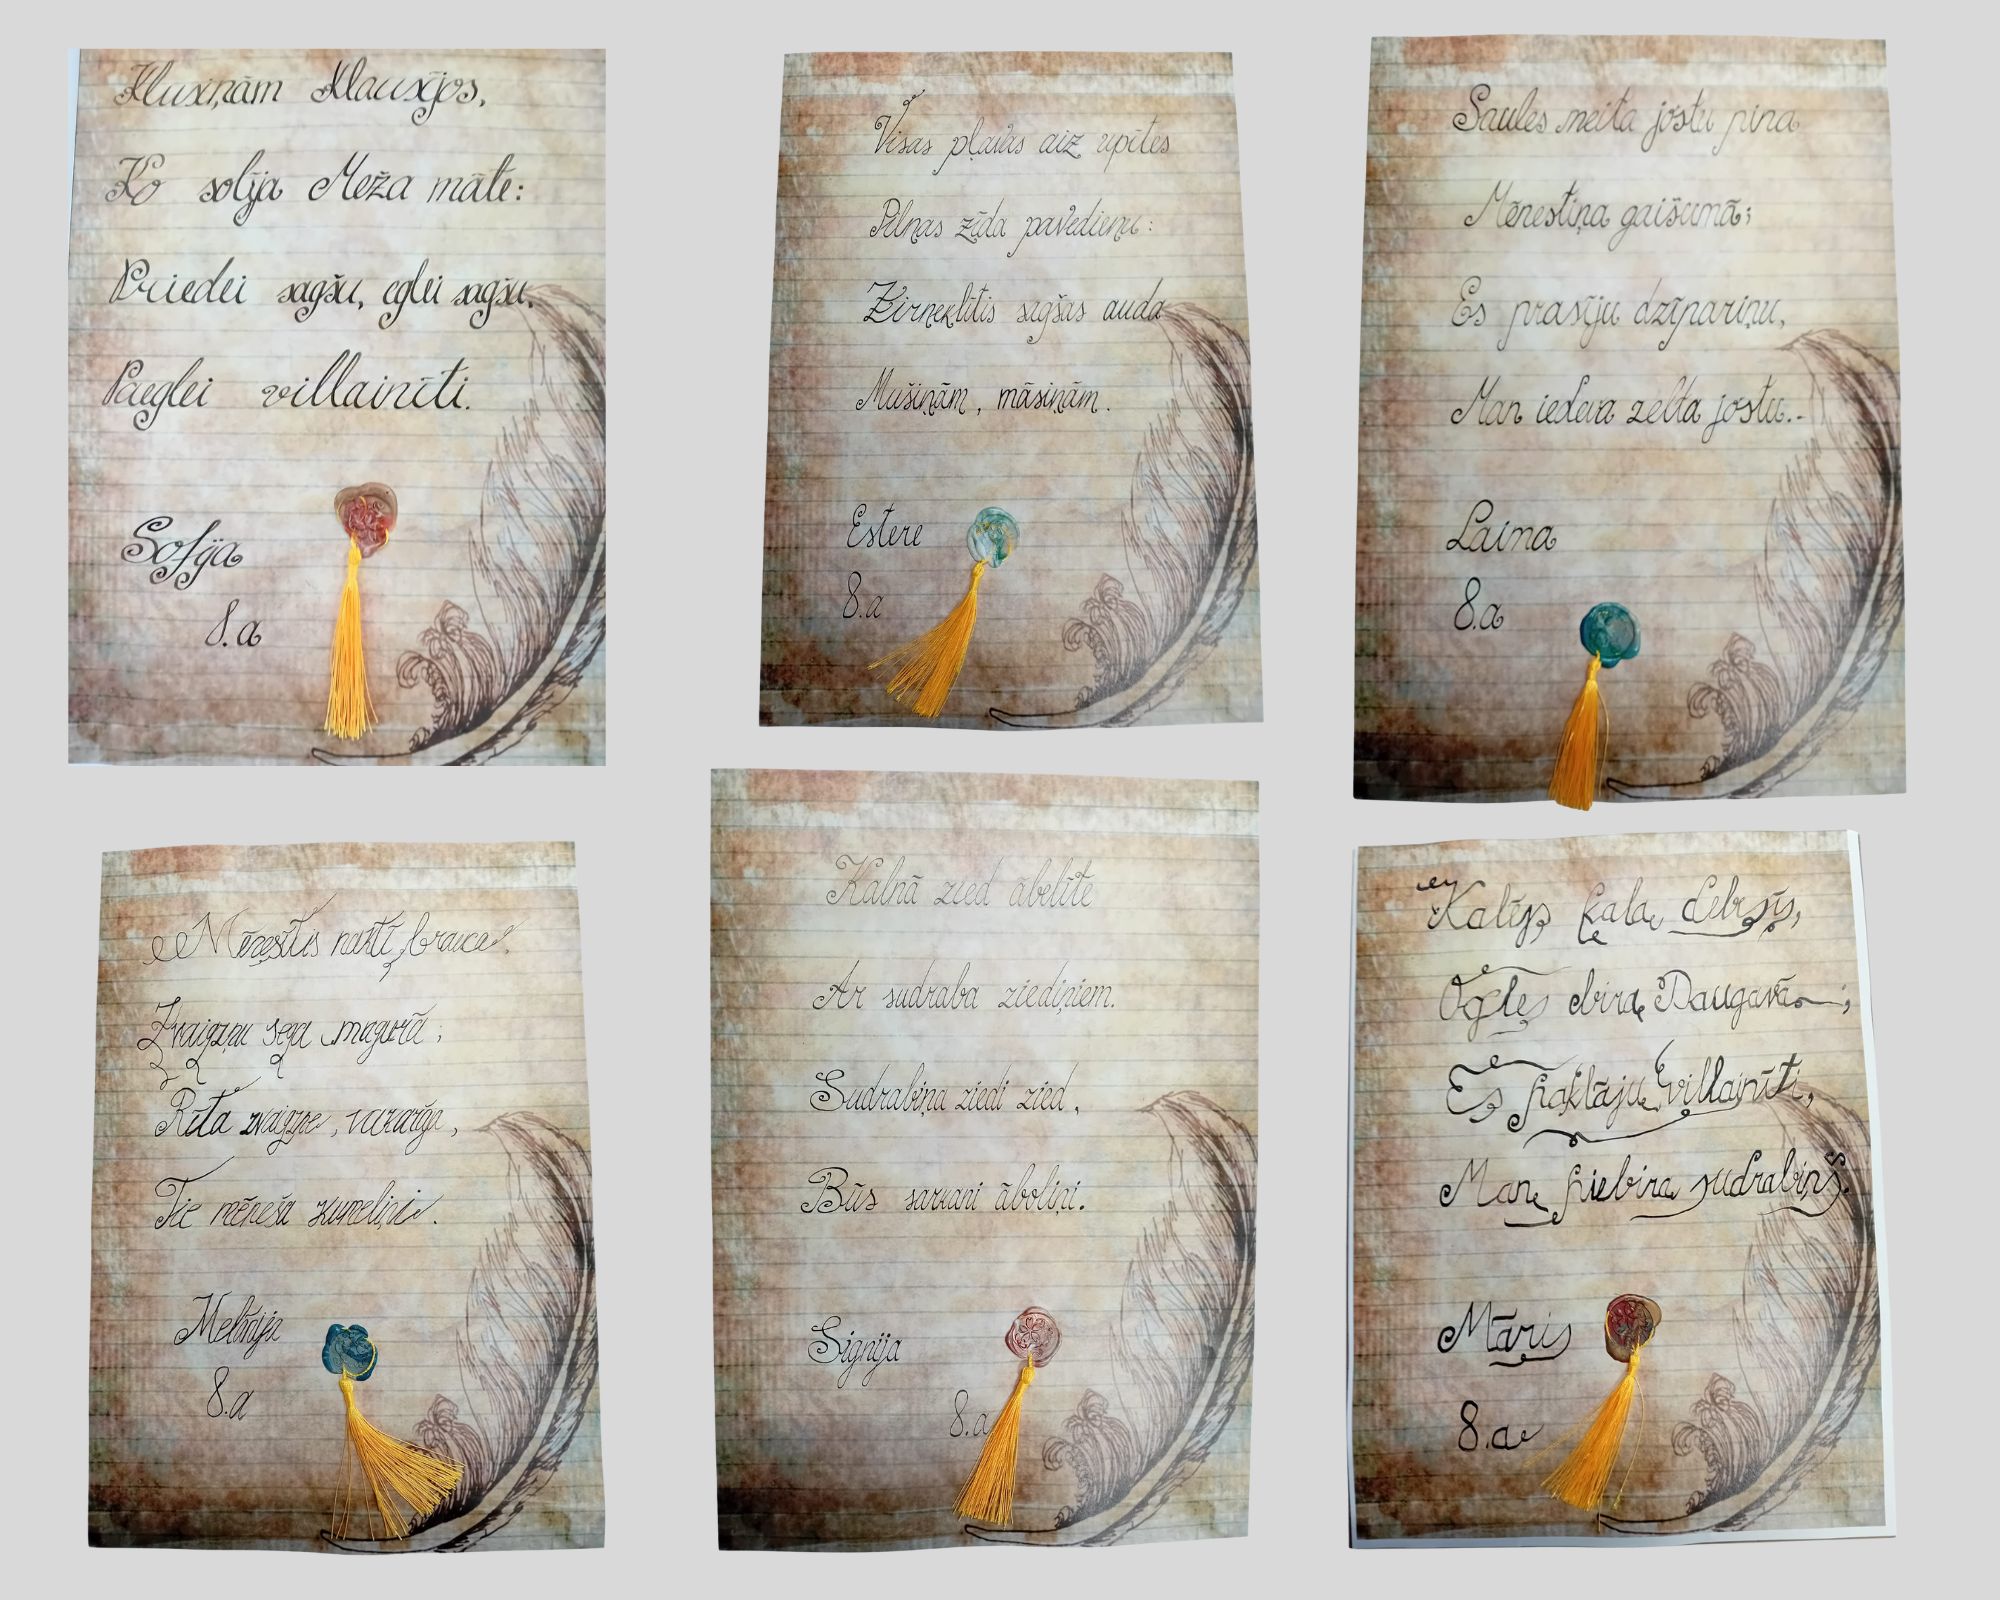 Klusiņām klausījos,
Ko solīja Meža māte:
Priedei sagšu, eglei sagšu,
Paeglei villainīti.
Sofija
8.a
Visas pļavas aiz upītes
Pilnas zīda pavedienu:
Zirneklītis sagšas auda
Mušiņām, māsiņām.
Estere
8.a
Saules meita jostu pina
Mēnestiņa gaišumā;
Es prasīju dzīpariņu,
Man iedeva zelta jostu..
Laima
8.a
Mēnestiņis nakti brauca,
Zvaigžņu sega mugurā;
Rīta zvaigzne, vakarēja,
Tie mēneša kumeliņi.
8.a
Kalnā zied ābelīte
Ar sudraba ziediņiem.
Sudrabiņa ziedi zied,
Būs sarkani āboliņi.
Signija
8.a
Kalējs kala debesīs,
Ogles bira Daugavā;
Es paklāju villainīti,
Man piebira sudrabiņš.
Māris
8.a